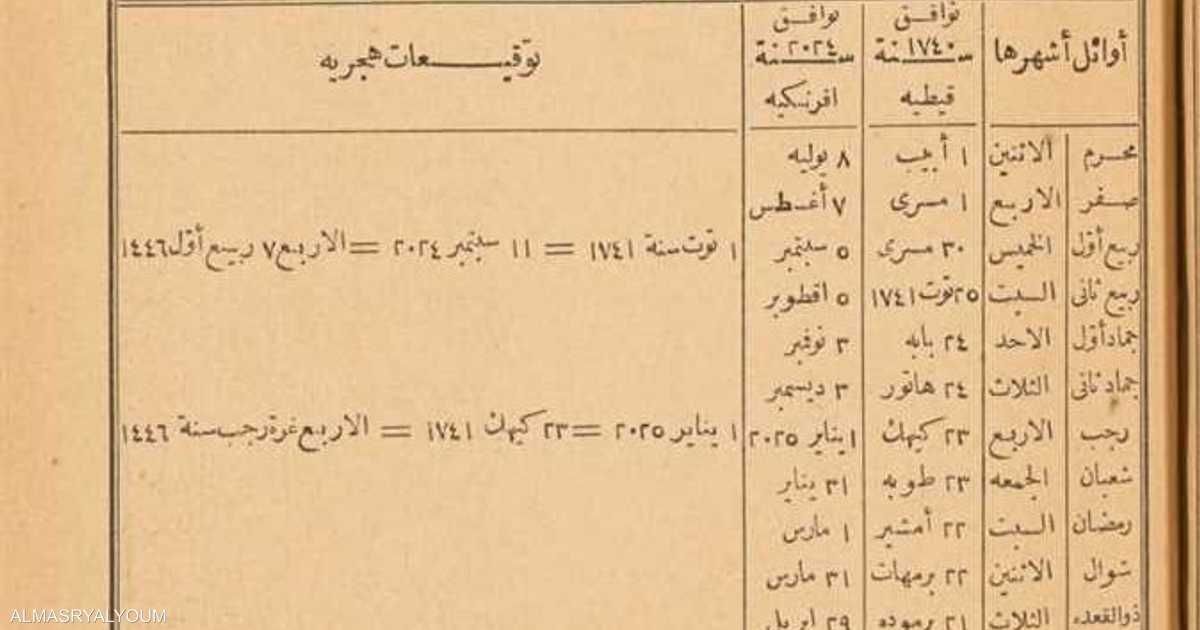 أوائل أشهرها توافق سنة ١٧٤٠ قبطيه توافق سنة ٢٠٢٤ افرنكيه توقيعات هجريه
محرم الاثنين ١ أبيب ٨ يوليه
صفر الاربع ١ مسرى ٧ أغسطس
ربيع أول الخميس ٣٠ مسرى ٥ سبتمبر ١ توت سنة ١٧٤١ = ١١ سبتمبر ٢٠٢٤ = الاربع ٧ ربيع أول ١٤٤٦
ربيع ثانى السبت ٢٥ توت ١٧٤١ ٥ اقطوبر
جماد أول الاحد ٢٤ بابه ٣ نوفمبر
جماد ثانى الثلاث ٢٤ هاتور ٣ ديسمبر
رجب الاربع ٢٣ كيهك ١ يناير ٢٠٢٥ ١ يناير ٢٠٢٥ = ٢٣ كيهك ١٧٤١ = الاربع غرة رجب سنة ١٤٤٦
شعبان الجمعه ٢٣ طوبه ٣١ يناير
رمضان السبت ٢٢ أمشير ١ مارس
شوال الاثنين ٢٢ برمهات ٣١ مارس
ذوالقعده الثلاث ٢١ برموده ٢٩ ابريل
ALMASRYALYOUM